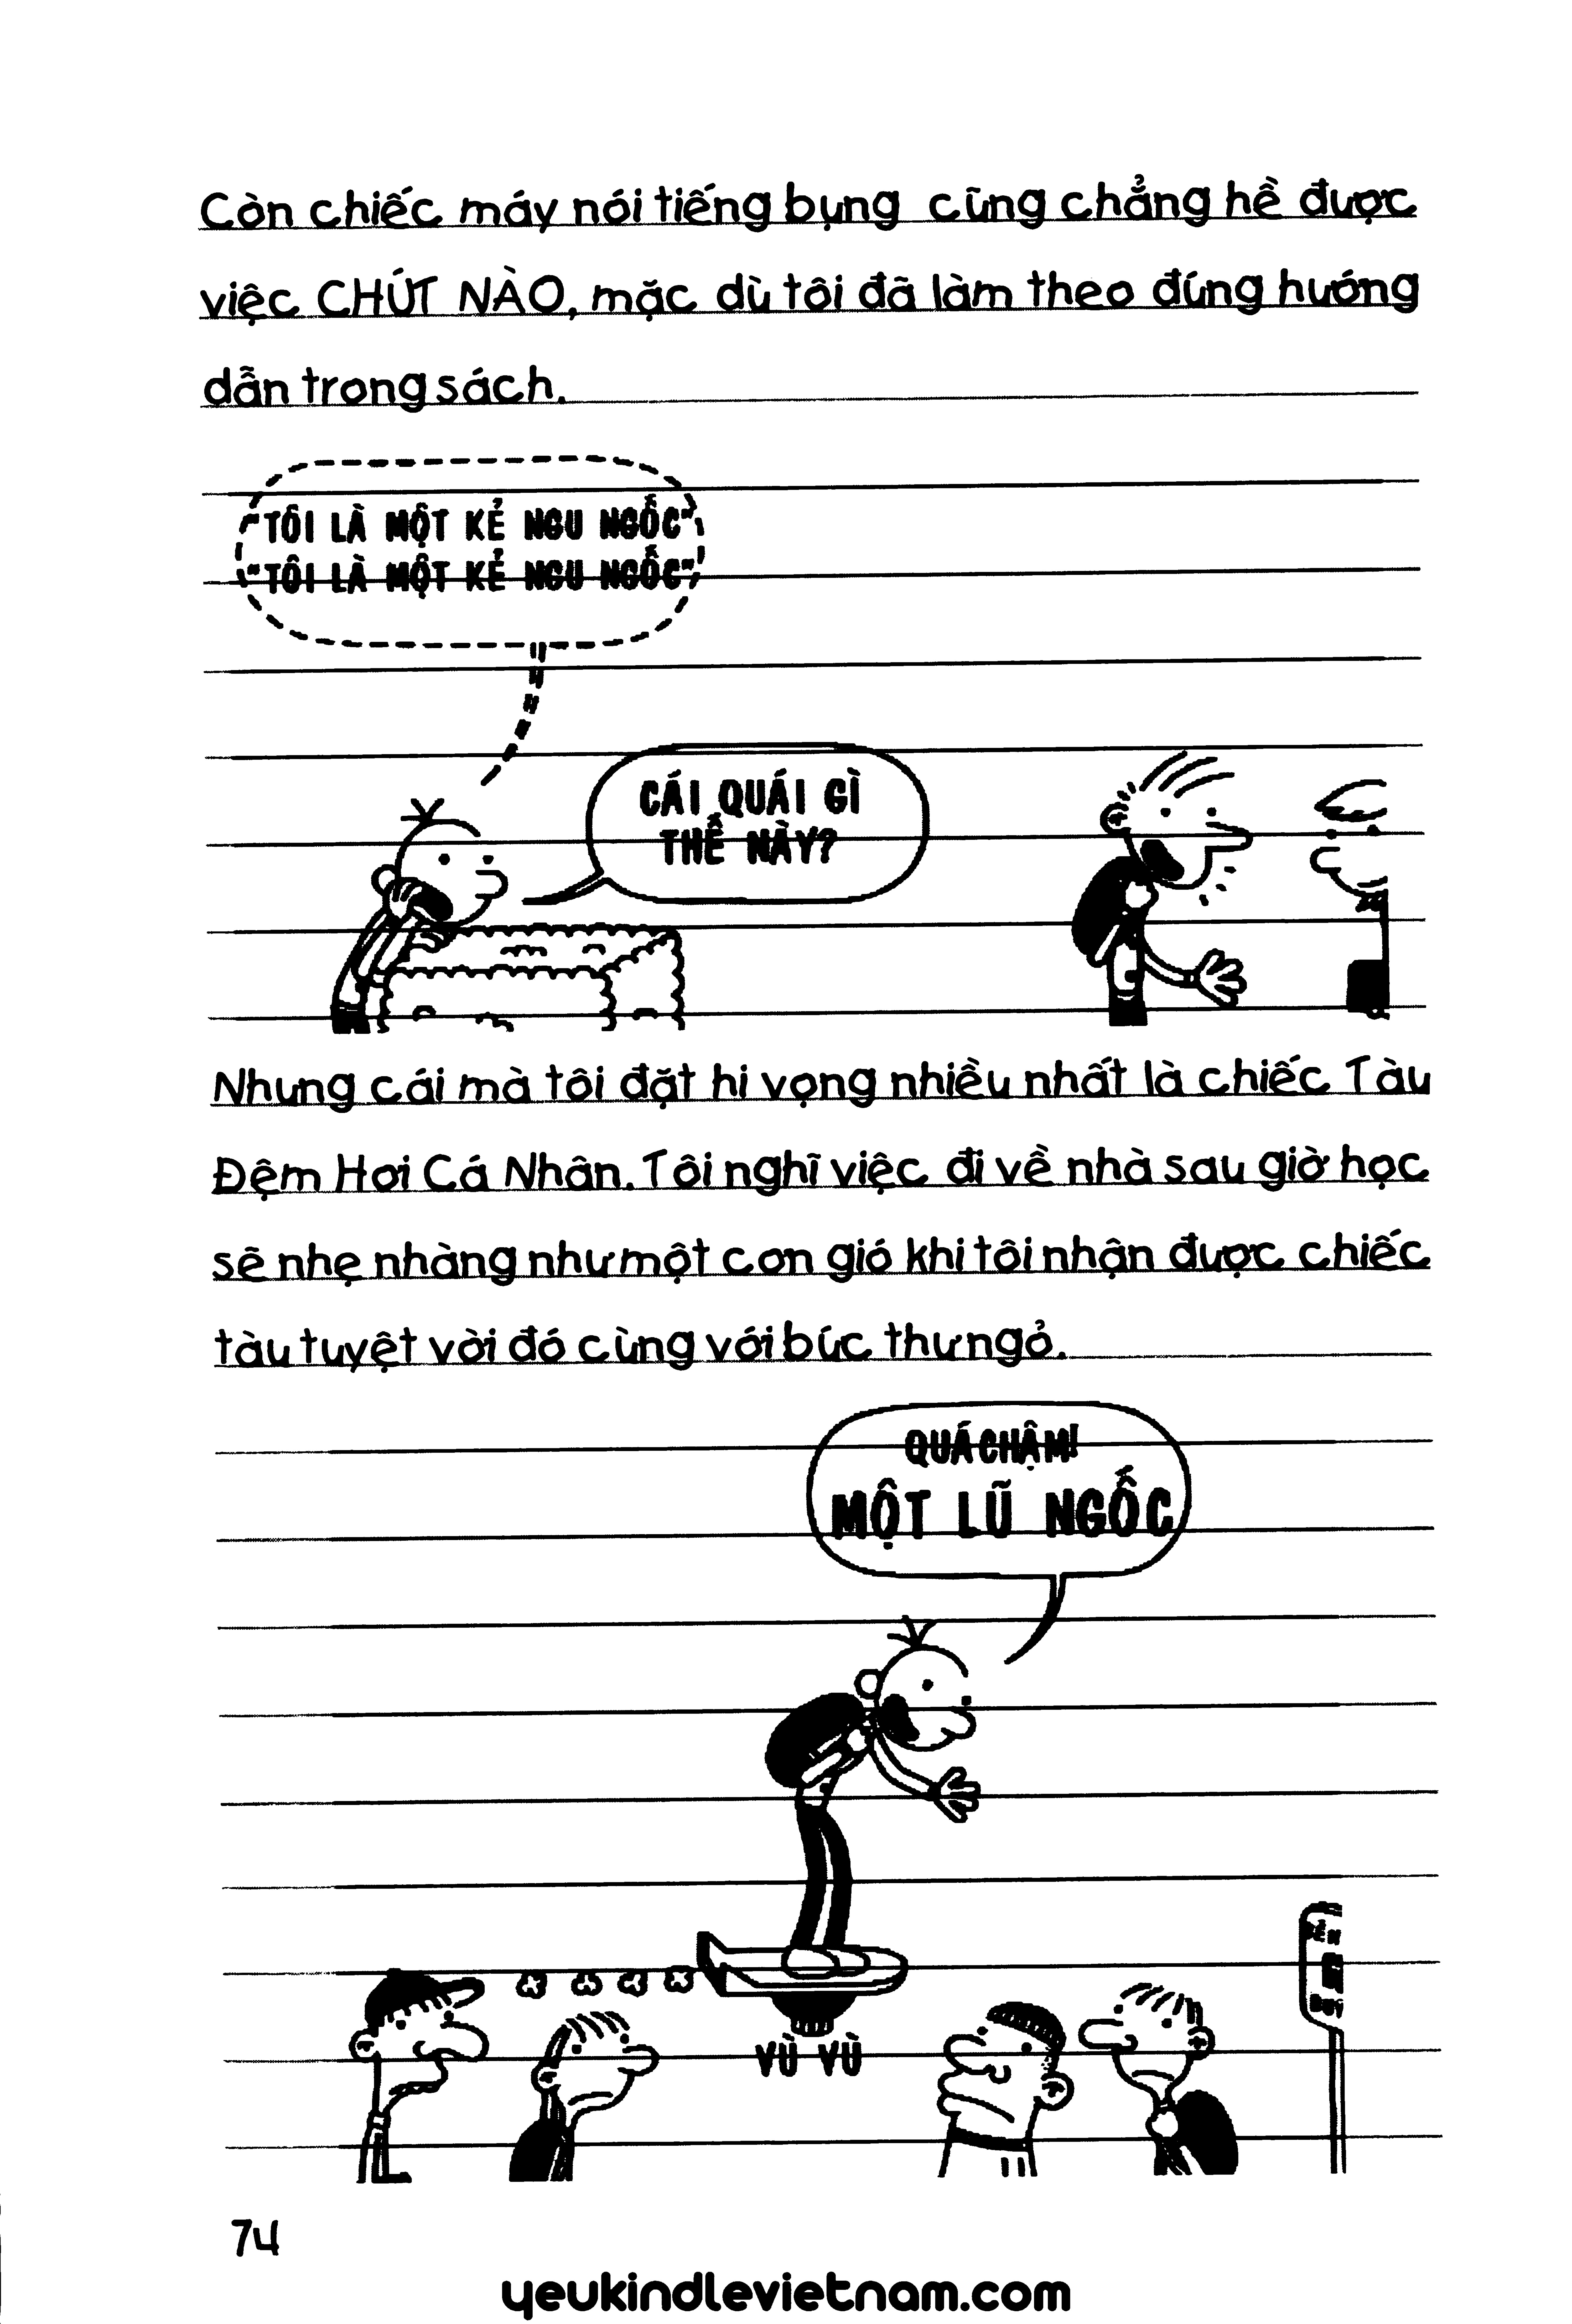 Còn chiếc máy nói tiếng bụng cũng chẳng hề được
việc CHÚT NÀO, mặc dù tôi đã làm theo đúng hướng
dẫn trong sách.
"TÔI LÀ MỘT KẺ NGU NGỐC"
"TÔI LÀ MỘT KẺ NGU NGỐC"
CÁI QUÁI GÌ
THẾ NÀY?
Nhưng cái mà tôi đặt hi vọng nhiều nhất là chiếc Tàu
Đệm Hơi Cá Nhân. Tôi nghĩ việc đi về nhà sau giờ học
sẽ nhẹ nhàng như một cơn gió khi tôi nhận được chiếc
tàu tuyệt vời đó cùng với bức thư ngỏ.
QUÁ CHẬM!
MỘT LŨ NGỐC
VÙ VÙ
74
yeukindlevietnam.com